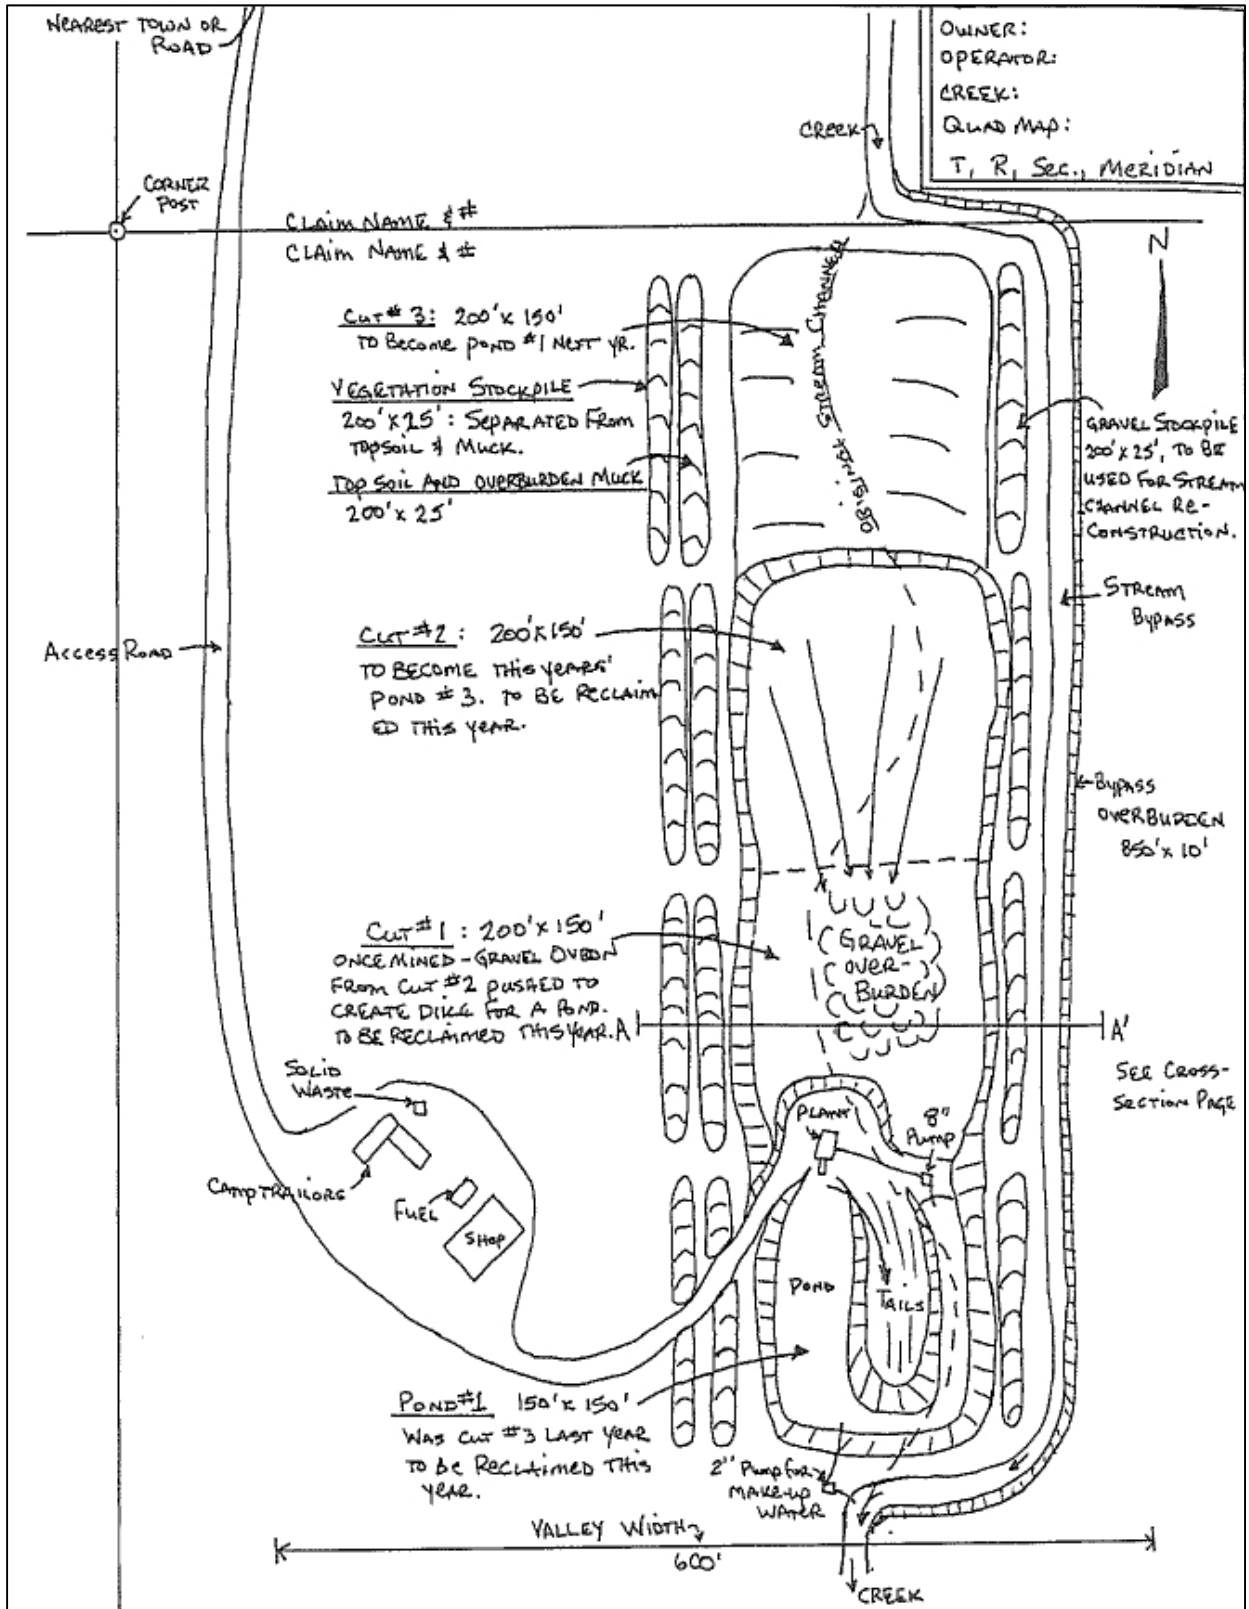 NEAREST TOWN OR
ROAD
OWNER:
OPERATOR:
CREEK:
QUAD MAP:
T, R, SEC., MERIDIAN
CREEK
CORNER
POST
CLAIM NAME & #
CLAIM NAME & #
N
CUT #3: 200' X 150'
TO BECOME POND #1 NEXT YR.
VEGETATION STOCKPILE
200' X 25': SEPARATED FROM
TOPSOIL & MUCK.
TOP SOIL AND OVERBURDEN MUCK
200' X 25'
EXISTING STREAM CHANNEL
GRAVEL STOCKPILE
200' X 25', TO BE
USED FOR STREAM
CHANNEL RE-
CONSTRUCTION.
STREAM
BYPASS
ACCESS ROAD
CUT #2: 200' X 150'
TO BECOME THIS YEARS'
POND #3. TO BE RECLAIM
ED THIS YEAR.
BYPASS
OVERBURDEN
850' X 10'
CUT #1: 200' X 150'
ONCE MINED - GRAVEL OVBDN
FROM CUT #2 PUSHED TO
CREATE DIKE FOR A POND.
TO BE RECLAIMED THIS YEAR.
GRAVEL
OVER-
BURDEN
A
A'
SEE CROSS-
SECTION PAGE
SOLID
WASTE
PLANT
8"
PUMP
CAMP TRAILORS
FUEL
SHOP
POND
TAILS
POND #1 150' X 150'
WAS CUT #3 LAST YEAR
TO BE RECLAIMED THIS
YEAR.
2" PUMP FOR
MAKE-UP
WATER
VALLEY WIDTH
600'
CREEK